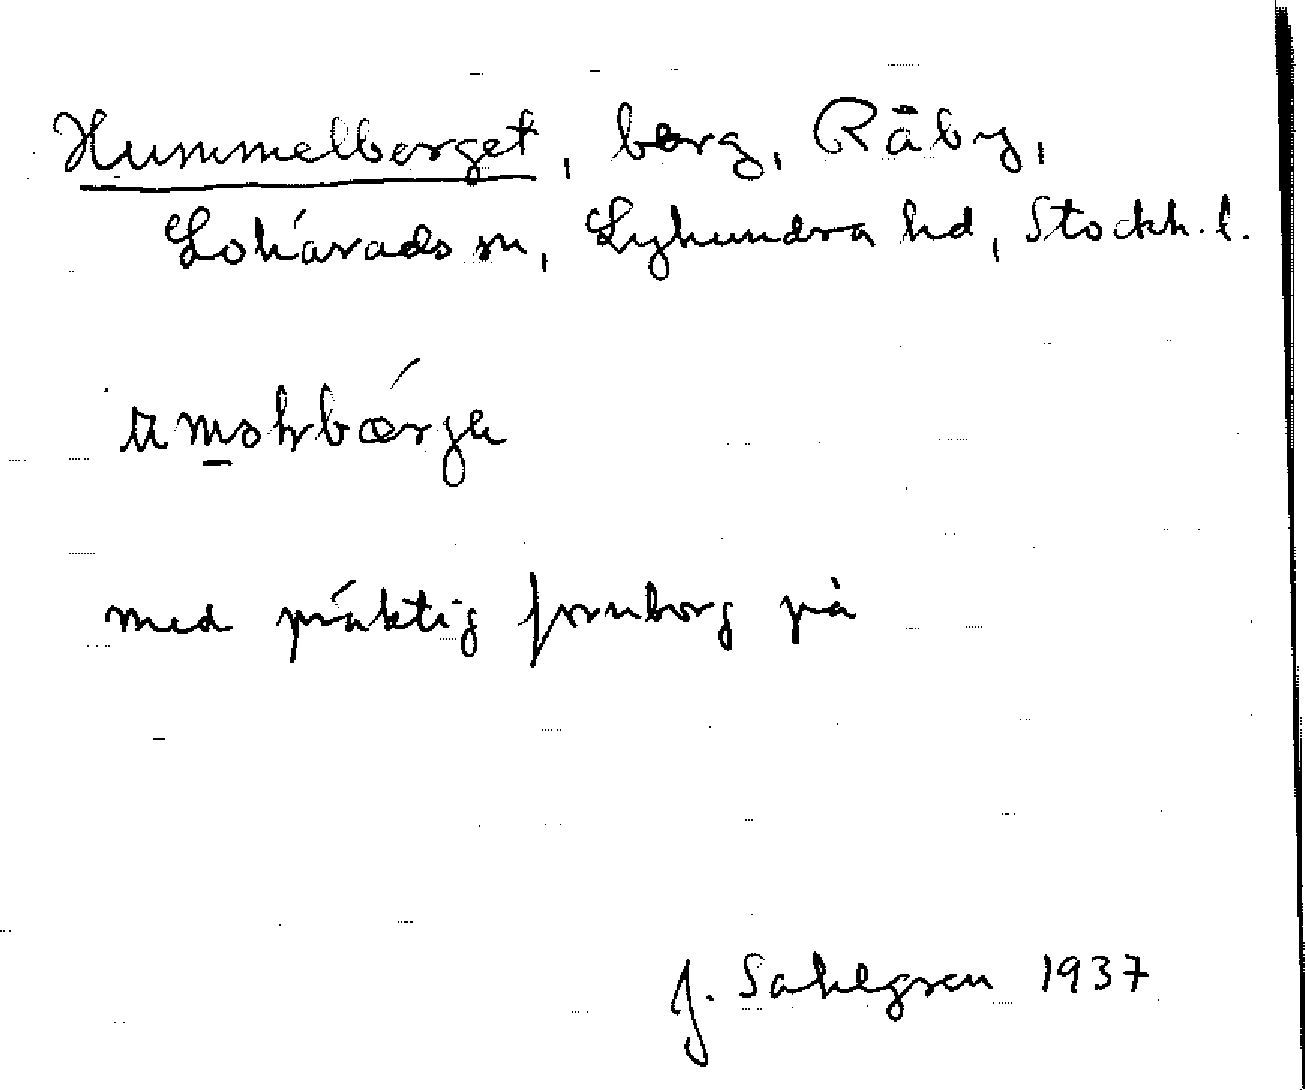 Hummelberget, berg, Råby,
Lohärads sn, Lyhundra hd, Stockh. l.
med präktig fornborg på
J. Sahlgren 1937